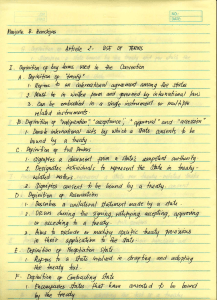 NO.
DATE
Article 2- USE OF TERMS
I. Definition of key terms used in the Convention
A. Definition of "treaty"
1. Refers to an international agreement among the states
2. Must in written form and governed by international laws
3. Can be embodied in a single instrument or multiple
related instruments
B. Definition of "ratification" "acceptance", "approval" and "accession"
1. Denote international acts by which a state consents to be
bound by a treaty
C. Definition of Full Powers
1. Signifies a document from a state's competent authority
2. Designates individuals to represent the state in treaty-
related matters
3. Signifies consent to be bound by a treaty.
D. Definition of Reservations
1. Describes a unilateral statement made by a state
2. Occurs during the signing, ratifying accepting, approving
or acceding to a treaty
3. Aims to exclude or modify specific treaty provisions
in their application to the state
E. Definition of Negotiation State
1. Refers to a state involved in drafting and adopting
the treaty text
F. Definition of Contracting State
1. Encompasses states that have consented to be bound
by the treaty